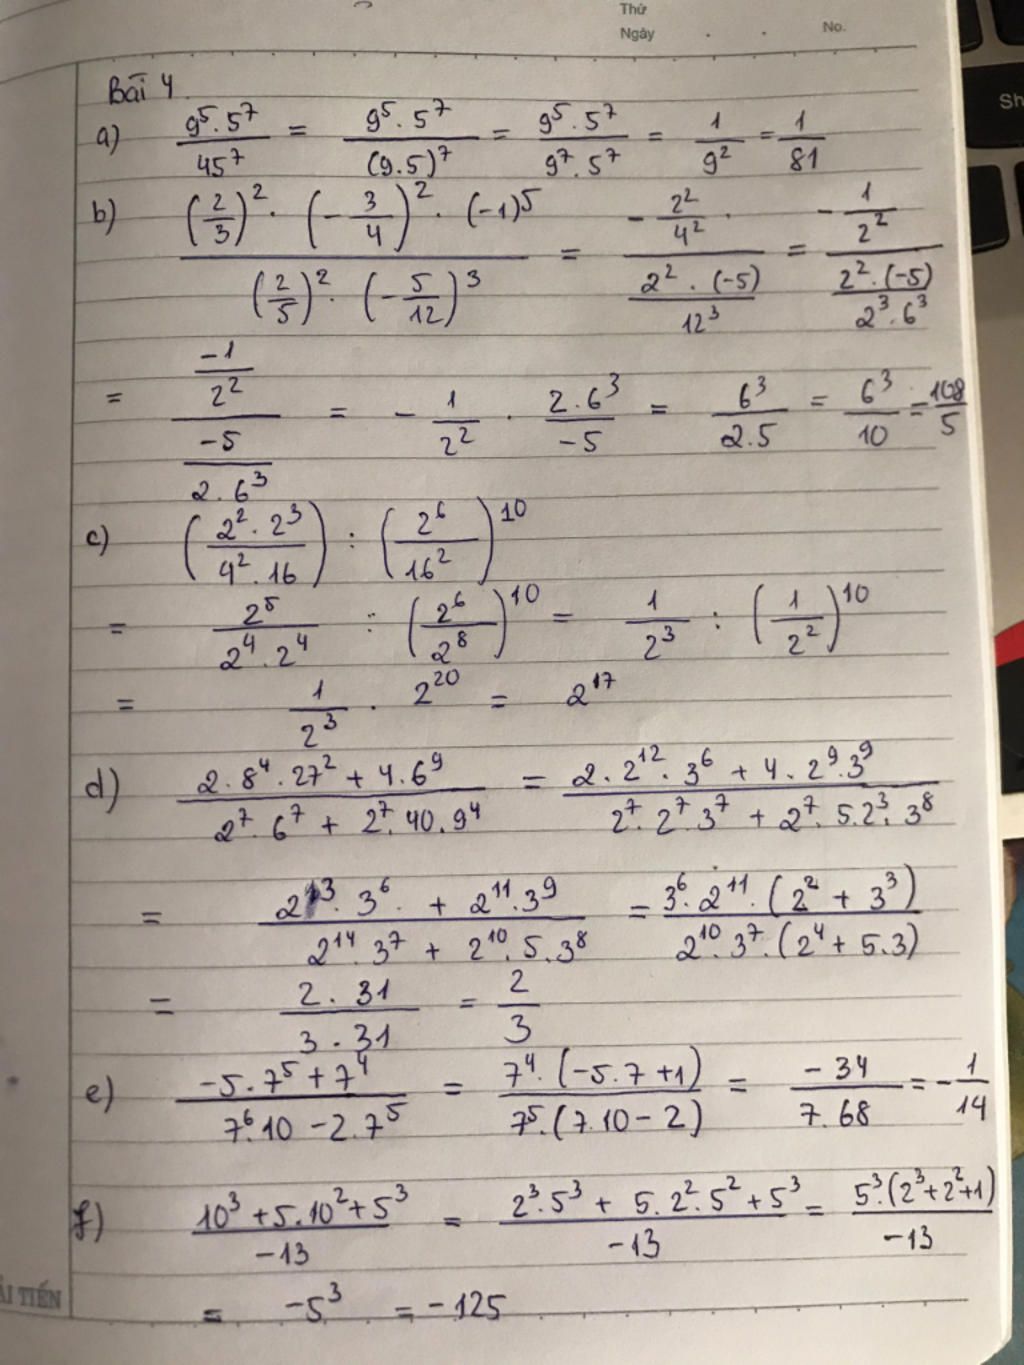 Thứ
Ngày . . No.
Sh
Bài 4
a) \frac{9^5 . 5^7}{45^7} = \frac{9^5 . 5^7}{(9.5)^7} = \frac{9^5 . 5^7}{9^7 . 5^7} = \frac{1}{9^2} = \frac{1}{81}
b) \frac{(\frac{2}{3})^2 . (-\frac{3}{4})^2 . (-1)^5}{(\frac{2}{5})^2 . (-\frac{5}{12})^3} = \frac{-\frac{2^2}{4^2} .}{\frac{2^2 . (-5)}{12^3}} = \frac{-\frac{1}{2^2}}{\frac{2^2 . (-5)}{2^3 . 6^3}}
= \frac{\frac{-1}{2^2}}{\frac{-5}{2 . 6^3}} = -\frac{1}{2^2} . \frac{2 . 6^3}{-5} = \frac{6^3}{2 . 5} = \frac{6^3}{10} = \frac{108}{5}
c) (\frac{2^2 . 2^3}{4^2 . 16}) : (\frac{2^6}{16^2})^{10}
= \frac{2^5}{2^4 . 2^4} : (\frac{2^6}{2^8})^{10} = \frac{1}{2^3} : (\frac{1}{2^2})^{10}
= \frac{1}{2^3} . 2^{20} = 2^{17}
d) \frac{2 . 8^4 . 27^2 + 4 . 6^9}{2^7 . 6^7 + 2^7 . 40 . 9^4} = \frac{2 . 2^{12} . 3^6 + 4 . 2^9 . 3^9}{2^7 . 2^7 . 3^7 + 2^7 . 5 . 2^3 . 3^8}
= \frac{2^{13} . 3^6 . + 2^{11} . 3^9}{2^{14} . 3^7 + 2^{10} . 5 . 3^8} = \frac{3^6 . 2^{11} . (2^2 + 3^3)}{2^{10} . 3^7 . (2^4 + 5 . 3)}
= \frac{2 . 31}{3 . 31} = \frac{2}{3}
e) \frac{-5 . 7^5 + 7^4}{7^6 . 10 - 2 . 7^5} = \frac{7^4 . (-5 . 7 + 1)}{7^5 . (7 . 10 - 2)} = \frac{-34}{7 . 68} = -\frac{1}{14}
f) \frac{10^3 + 5 . 10^2 + 5^3}{-13} = \frac{2^3 . 5^3 + 5 . 2^2 . 5^2 + 5^3}{-13} = \frac{5^3 . (2^3 + 2^2 + 1)}{-13}
= -5^3 = -125
ẢI TIẾN